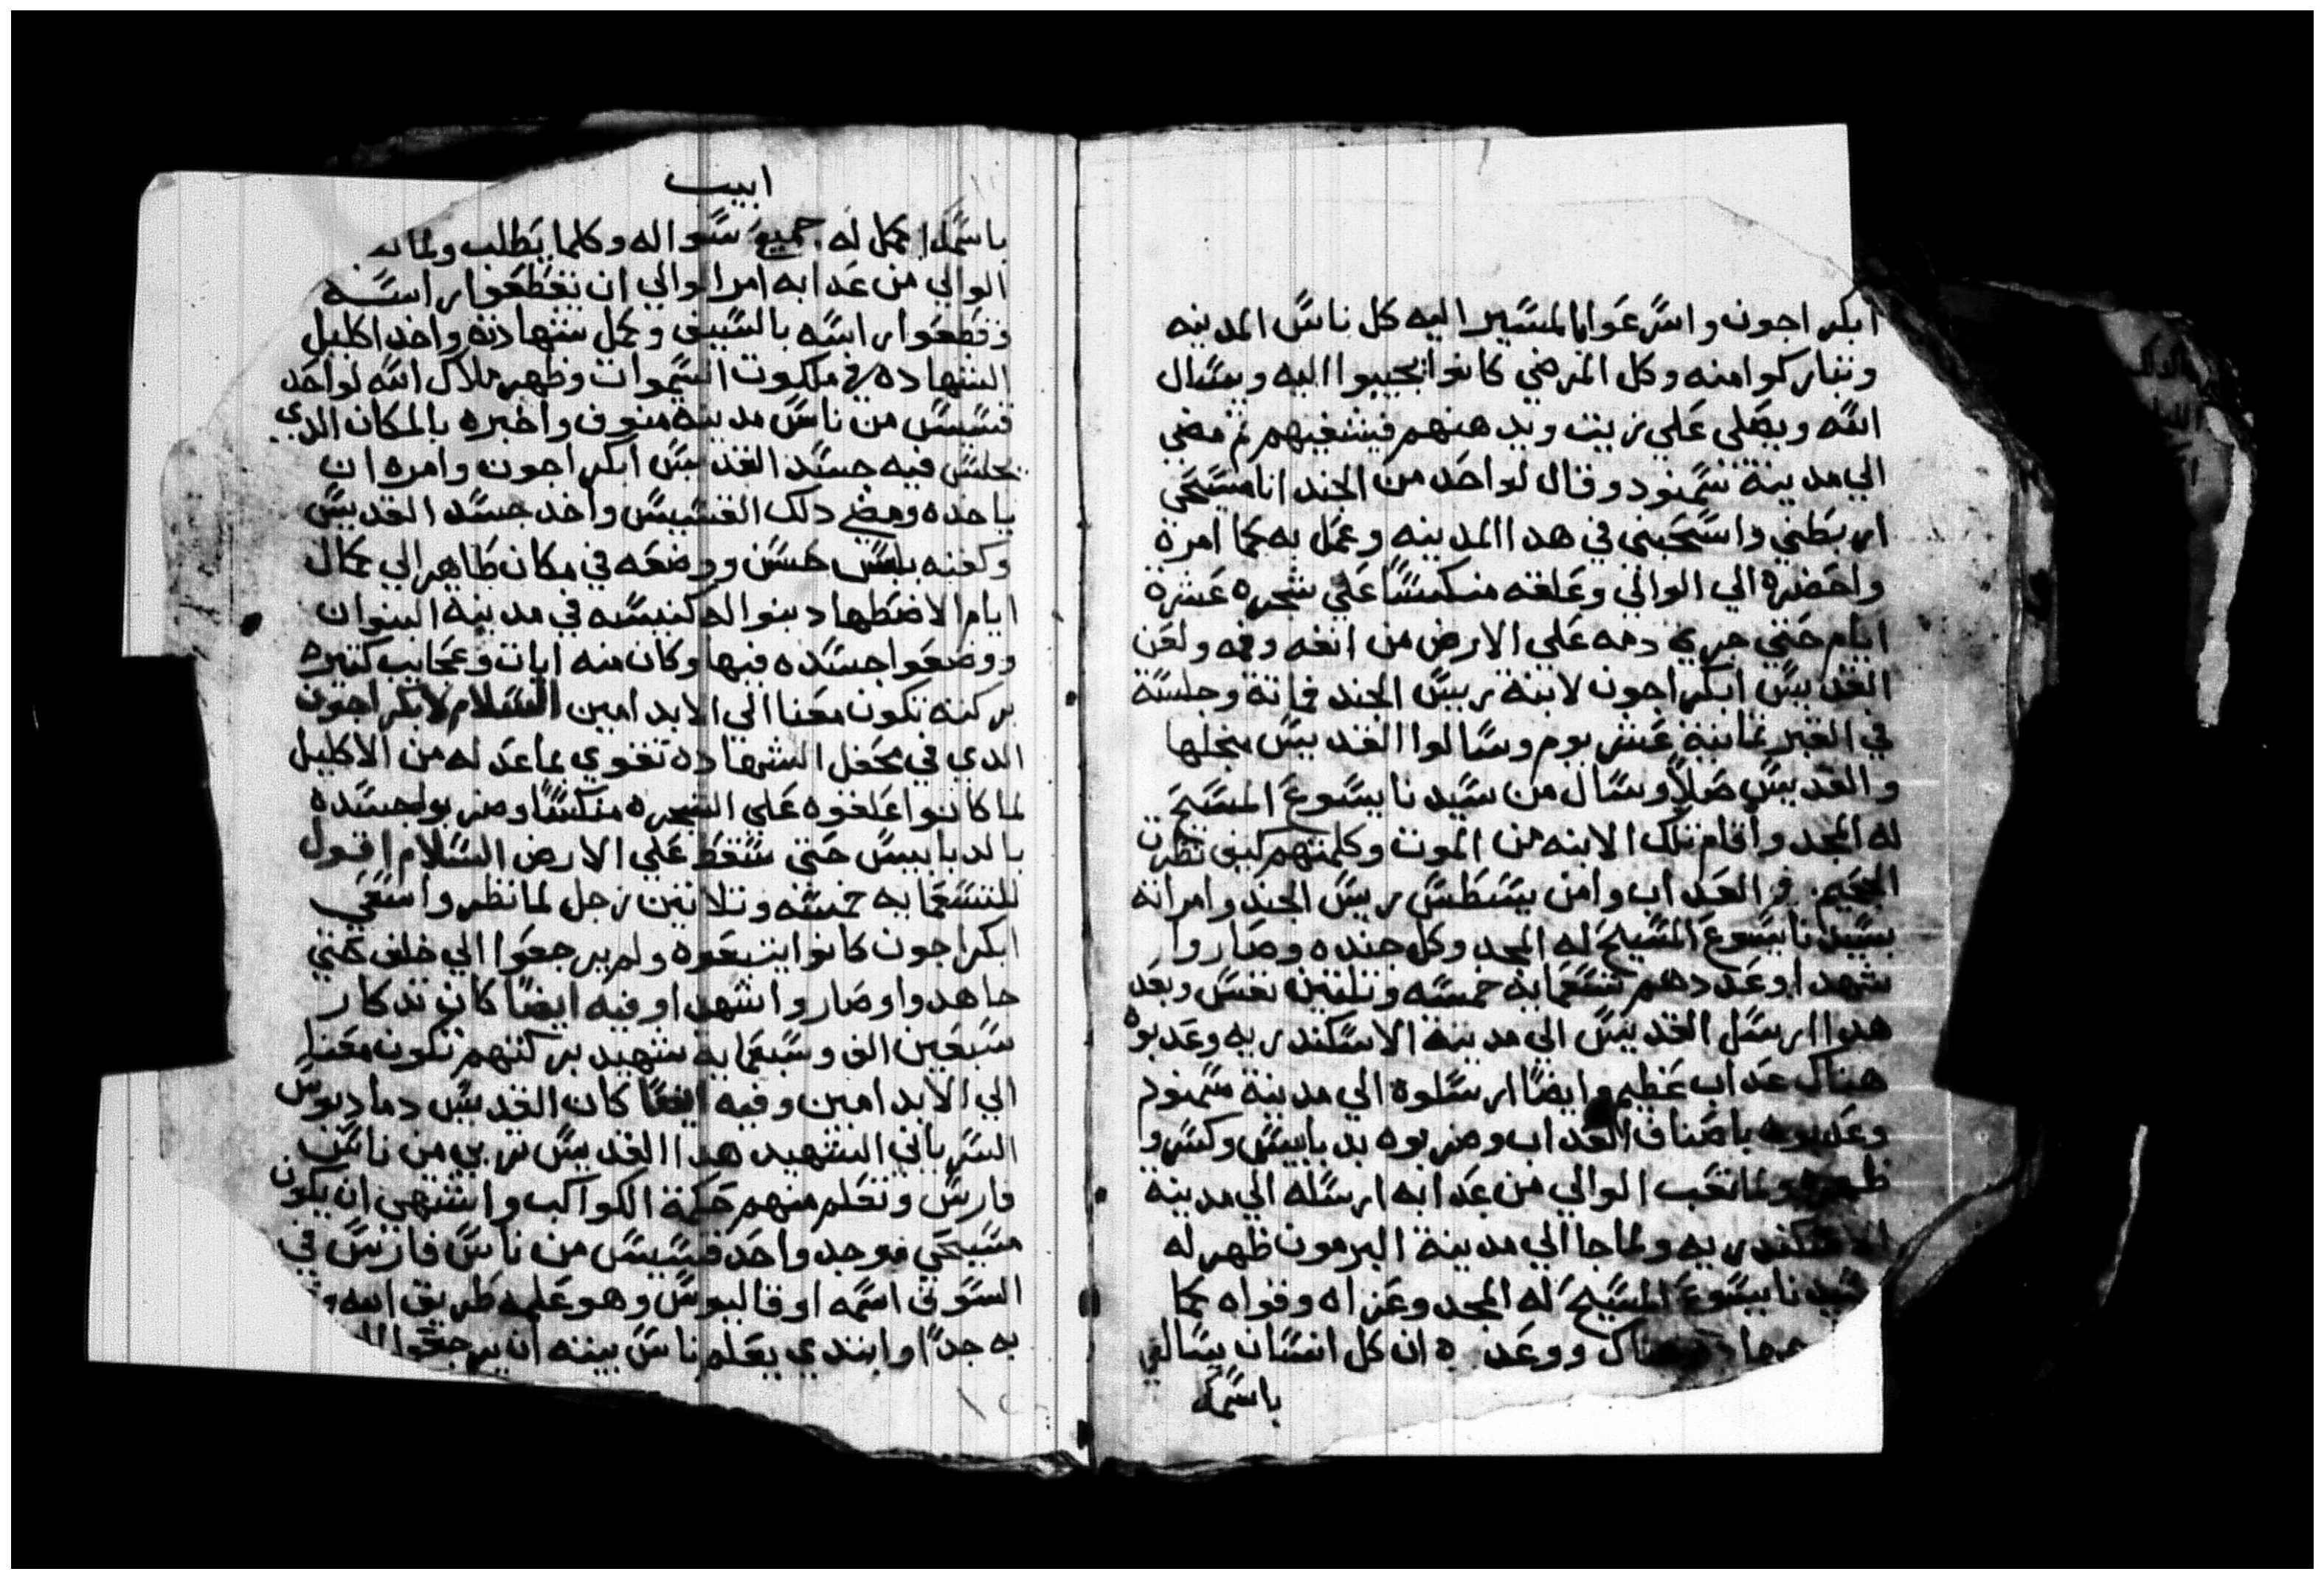 ابكراجون واسرعوا بالمسير اليه كل ناس المدينه
وتباركوا منه وكل المرضي كانوا يجيبوا اليه ويسال
الله ويصلى علي زيت ويدهنهم فيشفيهم ثم مضي
الي مدينة سمنود وقال لواحد من الجند انا مسيحي
اربطني واسحبني في هدا المدينه وعمل به كما امرة
واحضره الي الوالي وعلقه منكسا علي شجره عشرة
ايام حتي جري دمه علي الارض من انفه وفمه ولعن
القديس ابكراجون لابنة ريس الجند فماتة وجلسة
في القبر تمانية عشر يوم وسالوا القديس منجلها
والقديس صلا وسال من سيدنا يسوع المسيح
له المجد واقام تلك الابنه من الموت وكلمتهم كيف نظرت
الجحيم والعداب وامن يسطس ريس الجند وامراته
بسيدنا يسوع المسيح له المجد وكل جنده وصاروا
شهدا وعددهم تسعمايه خمسه وتلتين نفس وبعد
هدوا ارسل القديس الي مدينة الاسكندريه وعدبوه
هناك عداب عظيم وايضا ارسلوة الي مدينة سمنود
وعدبوه باصناف العداب وضربوه بدبابيس وكسروا
ظهره ولما تعب الوالي من عدابه ارسله الي مدينة
الاسكندريه ولما جا الي مدينة البرمون ظهر له
سيدنا يسوع المسيح له المجد وعزاه وقواه كما
هناك ووعده ان كل انسان يسال في
باسمك
ابيب
باسمك اكمل له جميع سواله وكلما يطلب ولما
الوالي من عدابه امر الوالي ان يقطعوا راسه
وقطعوا راسه بالسيف وكمل شهادته واخد اكليل
الشهاده في ملكوت السموات وظهر ملاك الله لواحد
قسيس من ناس مدينة منوف واخبره بالمكان الدي
يجلس فيه جسد القديس ابكراجون وامره ان
ياخده ومضي دلك القسيس واخد جسد القديس
وكفنه بلبس حسن ووضعه في مكان طاهر الي كمال
ايام الاضطهاد بنوا له كنيسه في مدينة البنوان
ووضعوا جسده فيها وكان منه ايات وعجايب كتيره
بركته تكون معنا الي الابد امين السلام لابكراجون
الدي في محفل الشهاده تقوي بما عد له من الاكليل
لما كانوا علقوه علي الشجره منكسا وضربوا جسده
بالدبابيس حتي سقط علي الارض السلام اقول
للتسعمايه خمسه وتلاتين رجل لما نظروا سعي
ابكراجون كانوا يتبعوه ولم يرجعوا الي خلف حتي
جاهدوا وصاروا شهدا وفيه ايضا كان تدكار
سبعين الف وسبعمايه شهيد بركتهم تكون معنا
الي الابد امين وفيه ايضا كان القديس دماديوس
السرياني الشهيد هدا القديس تربي من ناس
فارس وتعلم منهم حكمة الكواكب واشتهي ان يكون
مسيحي فوجد واحد قسيس من ناس فارس في
السوق اسمه اوقاليوس وهو علمه طريق الله
به جدا وابتدي يعلم ناس بيته ان يرجعوا